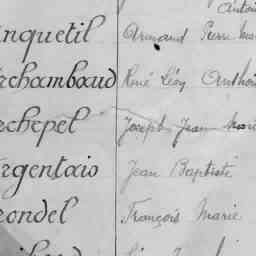 Antoi
nquetil Armand Pierre Mar
rchambaud René Léon Antho
rchepel Joseph Jean Marie
rgentais Jean Baptiste
rondel François Marie